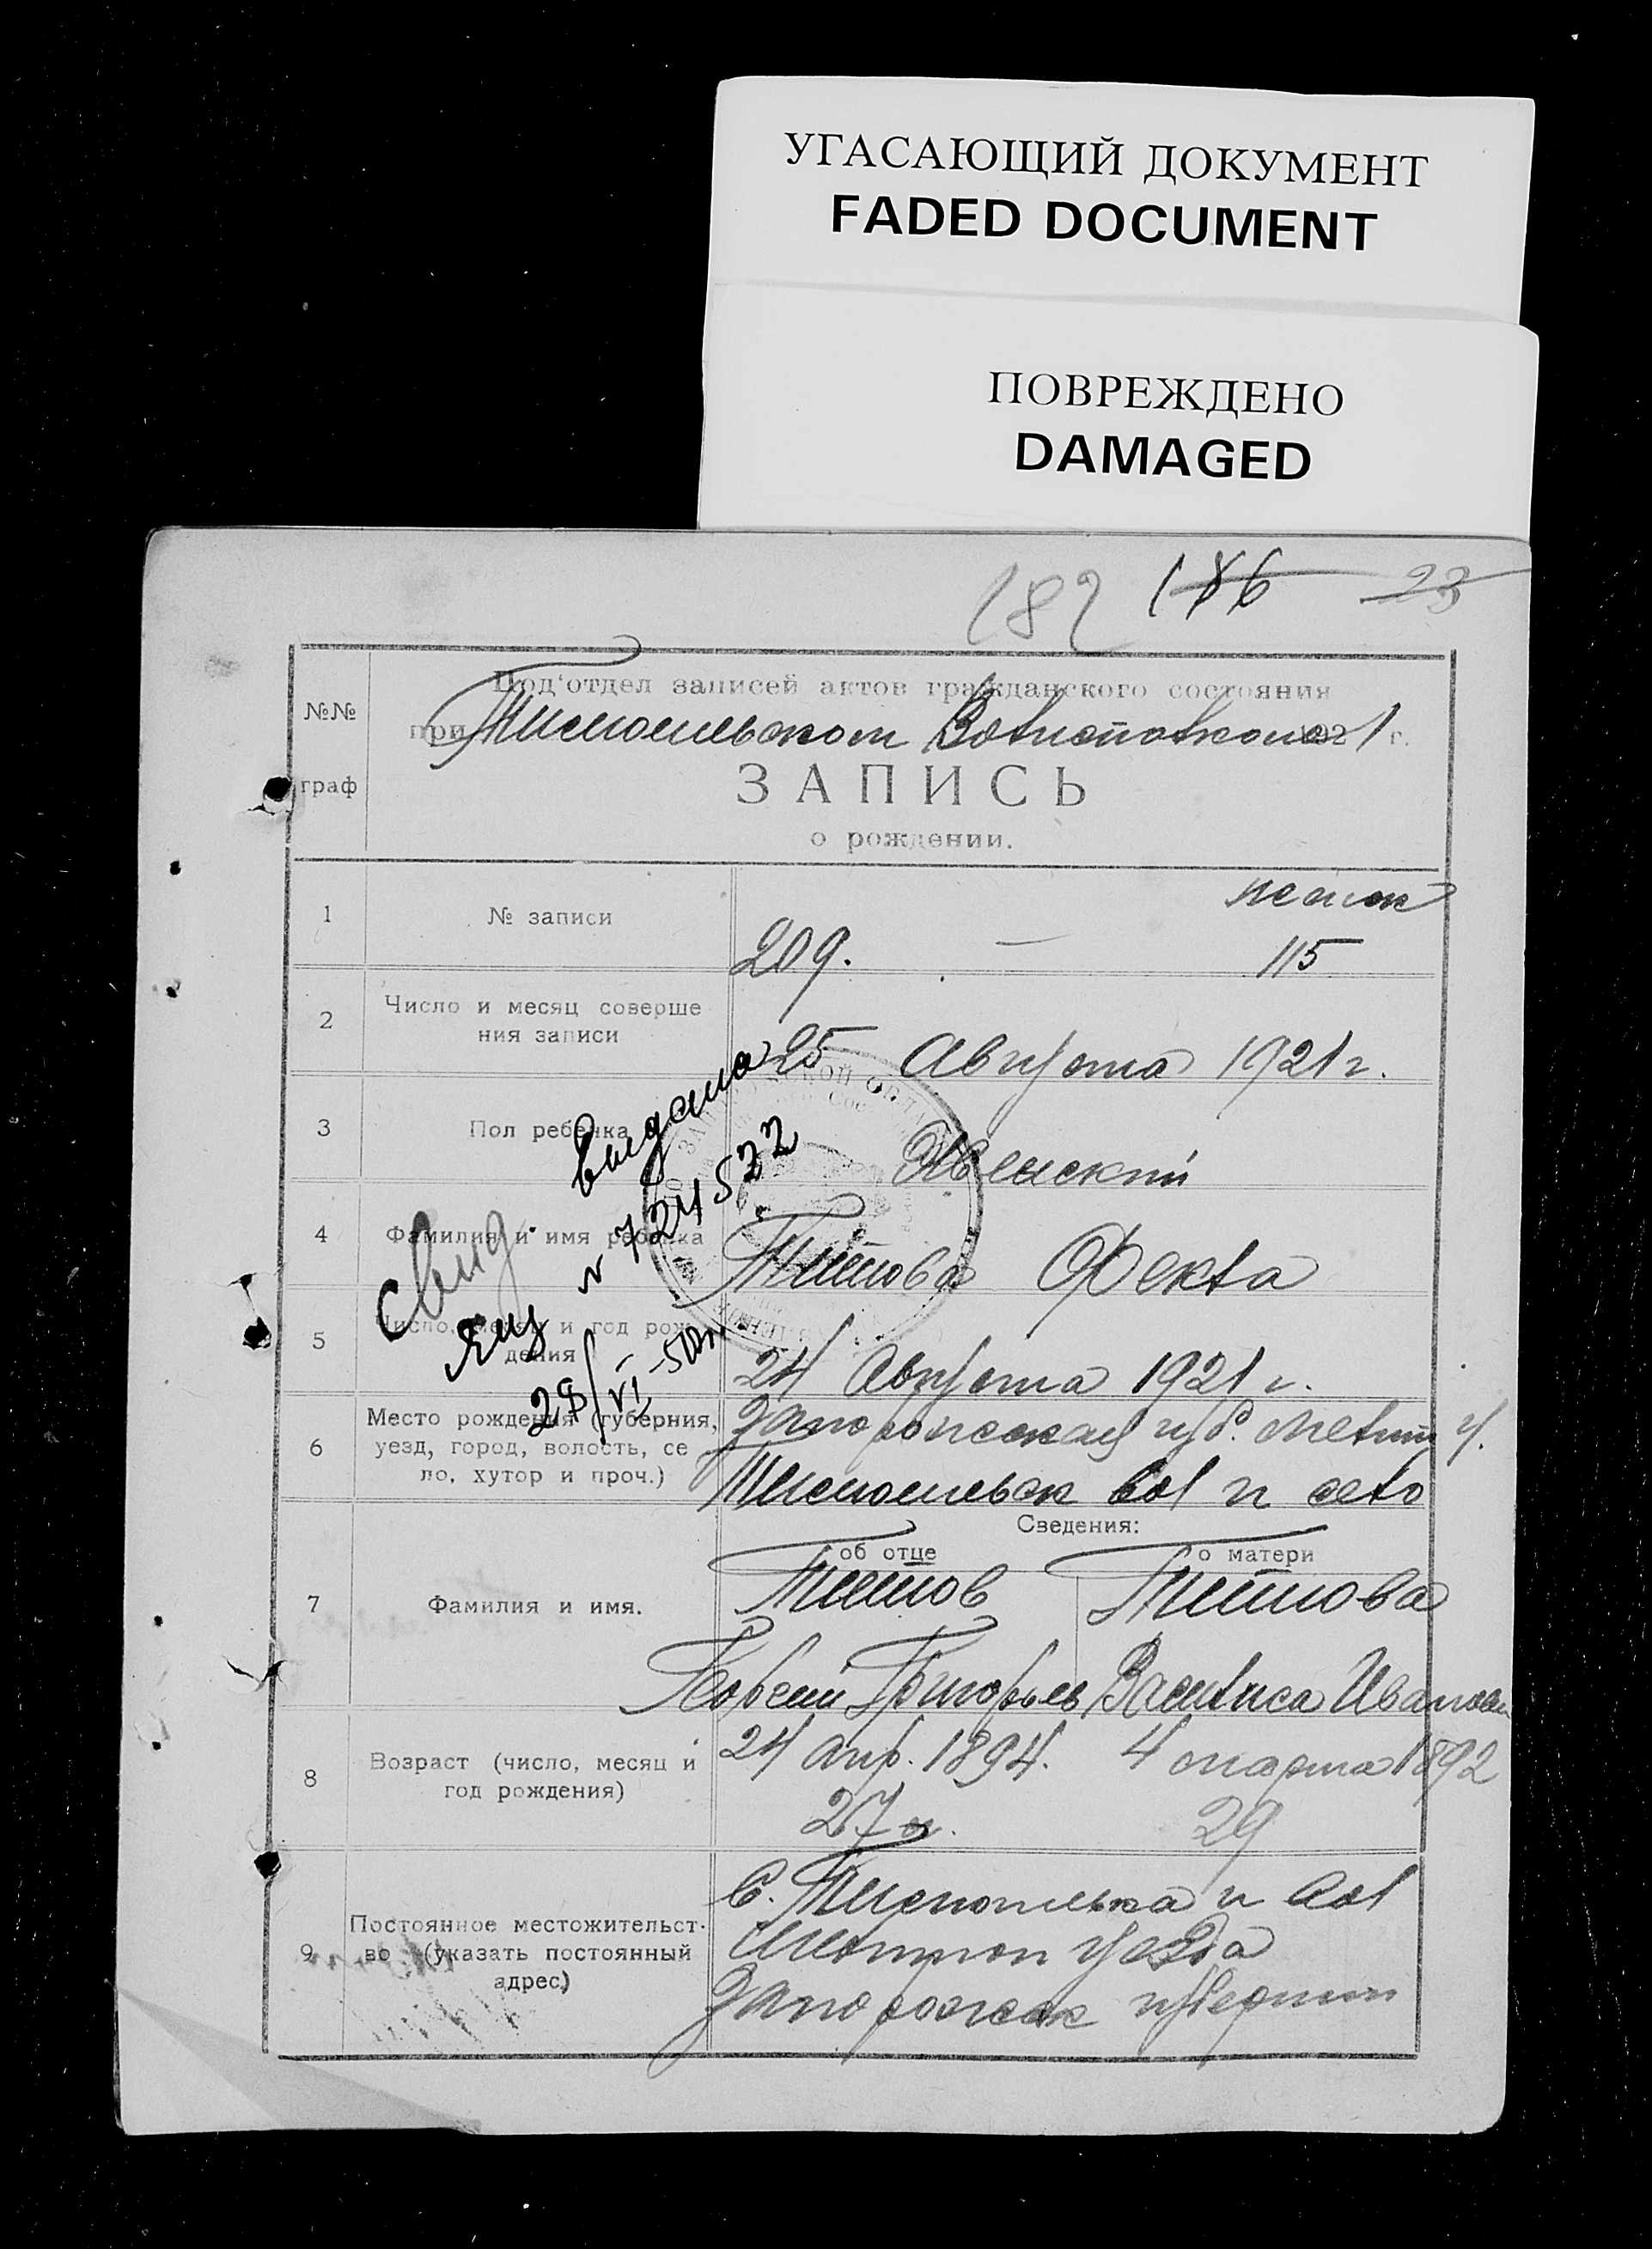 УГАСАЮЩИЙ ДОКУМЕНТ
FADED DOCUMENT
ПОВРЕЖДЕНО
DAMAGED
182 186 23
Под‘отдел записей актов гражданского состояния
при Волисполкоме 1921 г.
№№
граф
ЗАПИСЬ
о рождении.
1 № записи 209. — 115
2 Число и месяц соверше
ния записи
25 Августа 1921 г.
3 Пол ребенка Женский
4 Фамилия и имя ребенка Титова Фекла
5 Число, месяц и год рож
дения
24 Августа 1921 г.
6 Место рождения (губерния,
уезд, город, волость, се
ло, хутор и проч.)
Запорожская губ. Мелит у.
вол и село
Свид. выдано
ЯЦ № 724572
28/VI-50 г.
Сведения:
об отце о матери
7 Фамилия и имя.
Титов Титова
Григорьев Василиса Иванов
8 Возраст (число, месяц и
год рождения)
24 апр. 1894. 4 марта 1892
27 л. 29
9 Постоянное местожительст-
во (указать постоянный
адрес)
С. и вол
уезда
Запорожск губернии